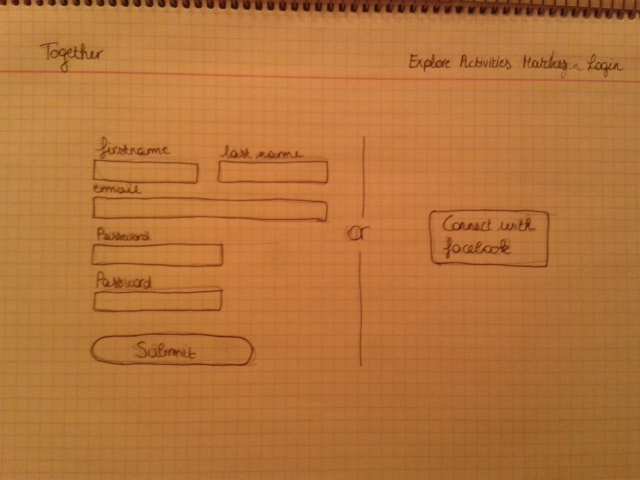 Together
Explore Activities Matches Login
firstname
last name
email
Password
Password
Submit
Or
Connect with
facebook